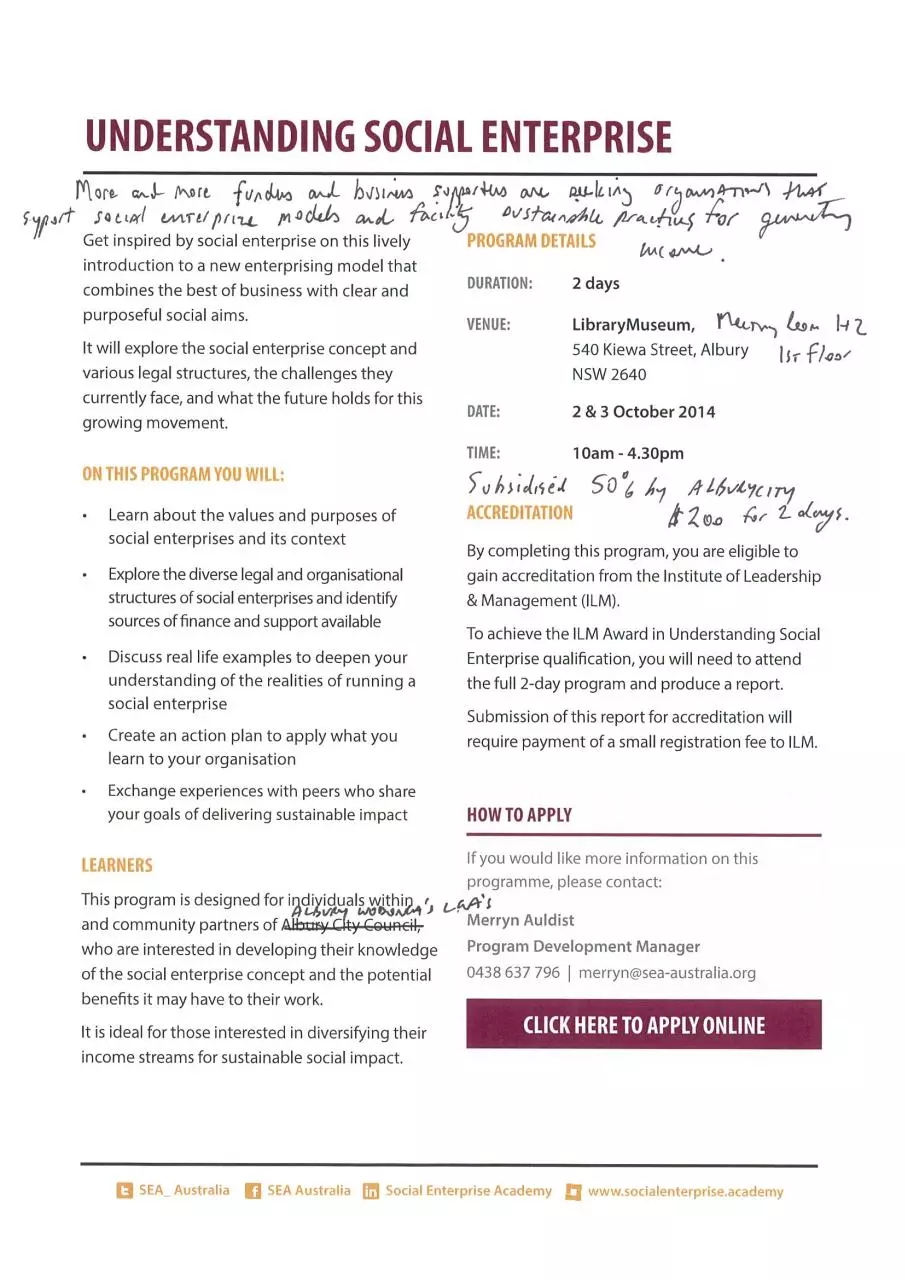 UNDERSTANDING SOCIAL ENTERPRISE
More and more funders and business supporters are seeking organisations that
support social enterprize models and facility sustainable practices for generating
income.
Get inspired by social enterprise on this lively
introduction to a new enterprising model that
combines the best of business with clear and
purposeful social aims.
It will explore the social enterprise concept and
various legal structures, the challenges they
currently face, and what the future holds for this
growing movement.
ON THIS PROGRAM YOU WILL:
• Learn about the values and purposes of
social enterprises and its context
• Explore the diverse legal and organisational
structures of social enterprises and identify
sources of finance and support available
• Discuss real life examples to deepen your
understanding of the realities of running a
social enterprise
• Create an action plan to apply what you
learn to your organisation
• Exchange experiences with peers who share
your goals of delivering sustainable impact
LEARNERS
This program is designed for individuals within
ALBURY WODONGA'S LGA'S
and community partners of Albury City Council,
who are interested in developing their knowledge
of the social enterprise concept and the potential
benefits it may have to their work.
It is ideal for those interested in diversifying their
income streams for sustainable social impact.
PROGRAM DETAILS
DURATION: 2 days
VENUE: LibraryMuseum, Meeting Room 1+2
540 Kiewa Street, Albury 1st Floor
NSW 2640
DATE: 2 & 3 October 2014
TIME: 10am - 4.30pm
Subsidised 50% by ALBURYCITY
$200 for 2 days.
ACCREDITATION
By completing this program, you are eligible to
gain accreditation from the Institute of Leadership
& Management (ILM).
To achieve the ILM Award in Understanding Social
Enterprise qualification, you will need to attend
the full 2-day program and produce a report.
Submission of this report for accreditation will
require payment of a small registration fee to ILM.
HOW TO APPLY
If you would like more information on this
programme, please contact:
Merryn Auldist
Program Development Manager
0438 637 796 | merryn@sea-australia.org
CLICK HERE TO APPLY ONLINE
SEA_ Australia SEA Australia Social Enterprise Academy www.socialenterprise.academy